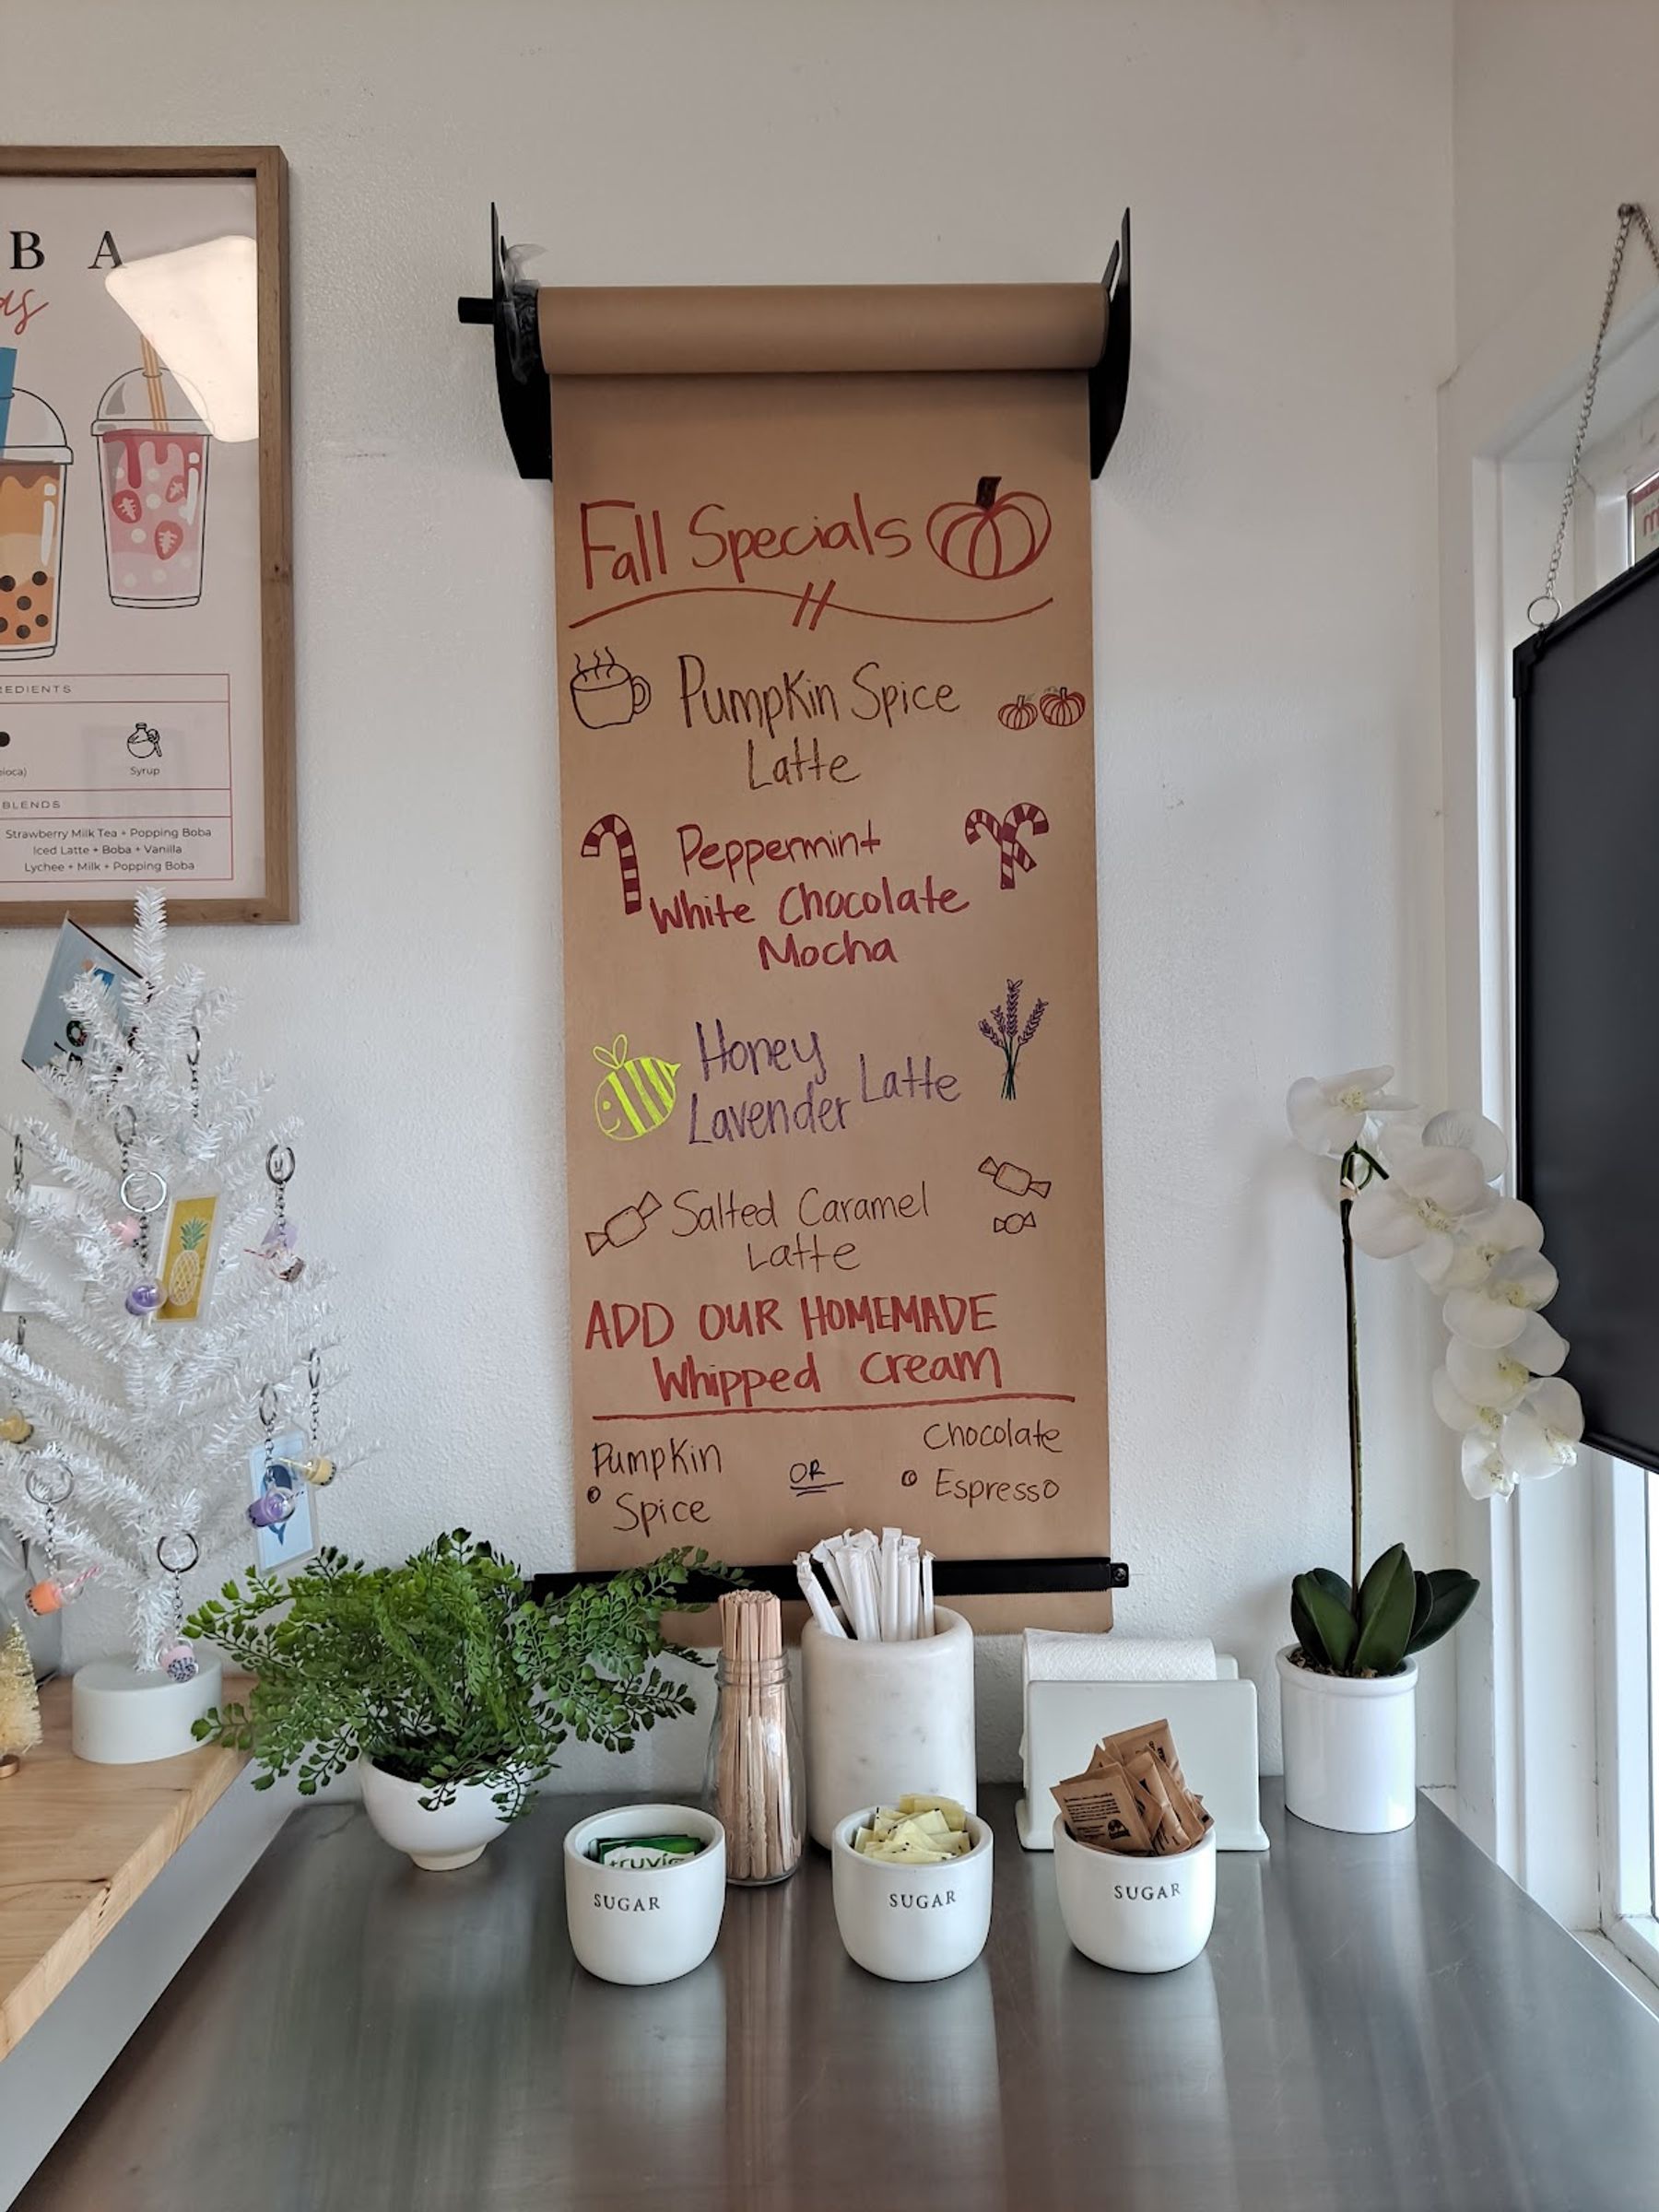 B A
REDIENTS
Syrup
BLENDS
Strawberry Milk Tea + Popping Boba
Iced Latte + Boba + Vanilla
Lychee + Milk + Popping Boba
Fall Specials
Pumpkin Spice
Latte
Peppermint
White Chocolate
Mocha
Honey
Lavender Latte
Salted Caramel
Latte
ADD OUR HOMEMADE
Whipped Cream
Pumpkin
Spice
OR
Chocolate
Espresso
truvia
SUGAR
SUGAR
SUGAR